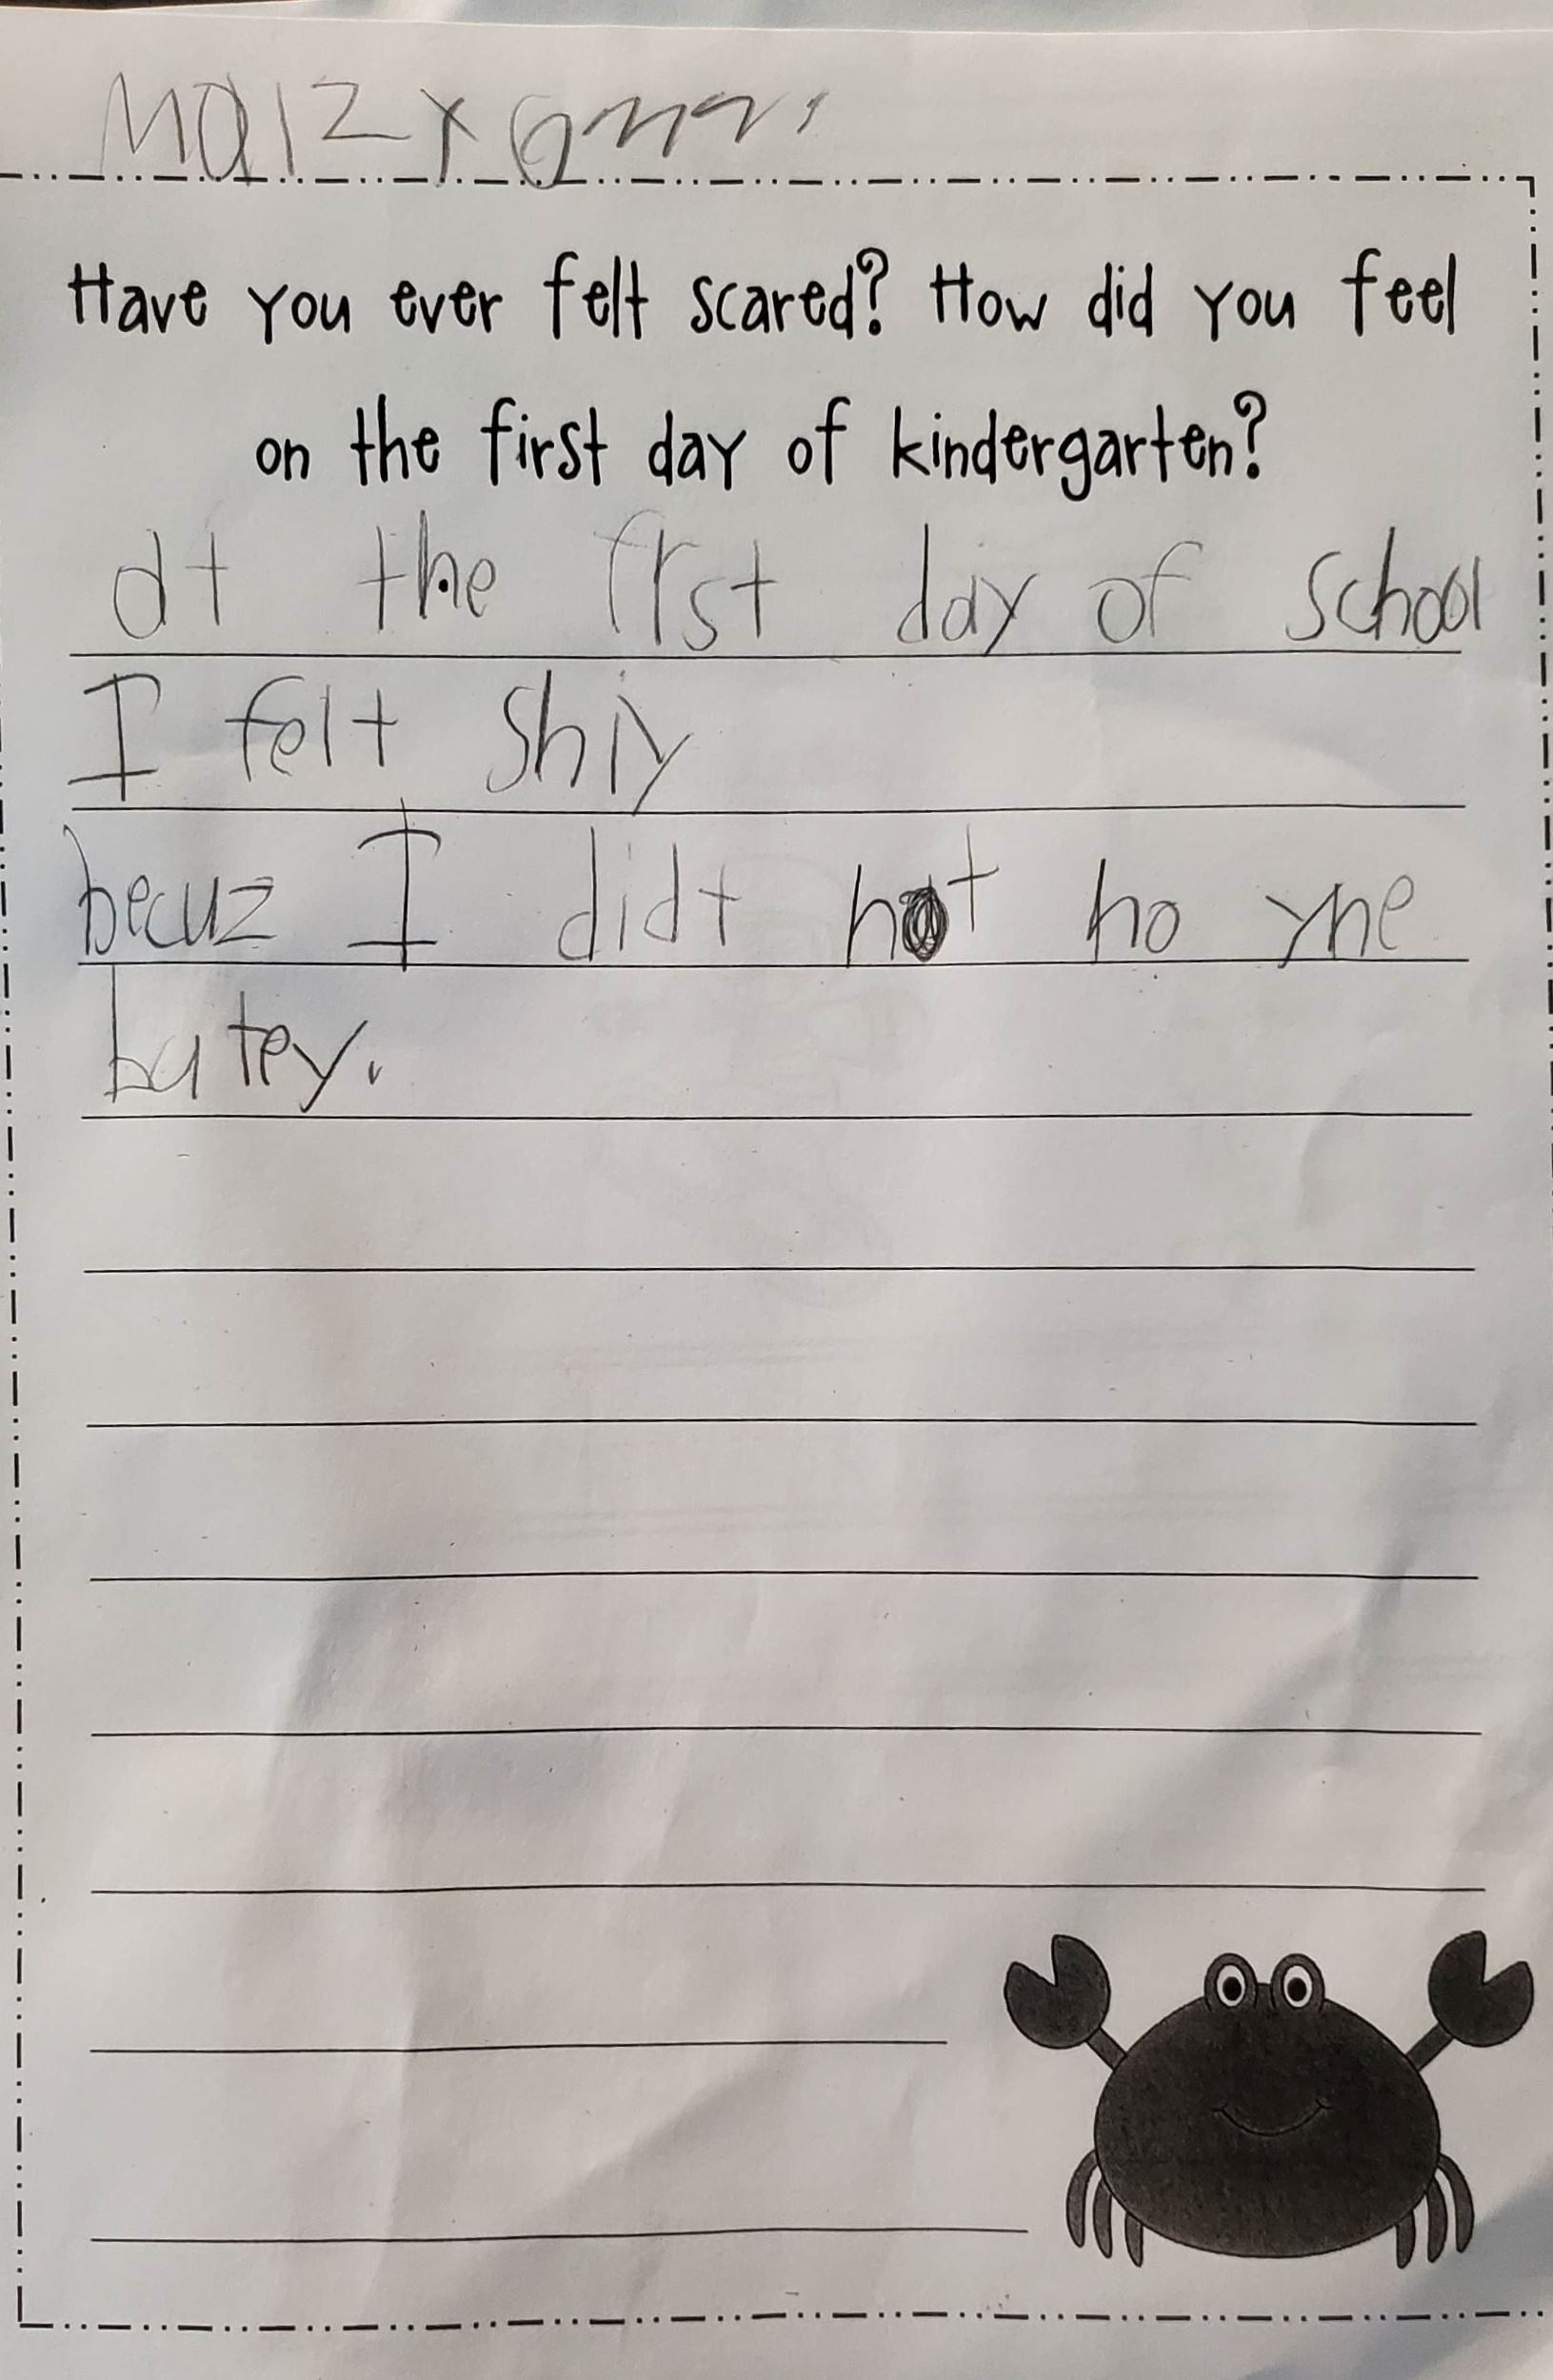 Have you ever felt scared? How did you feel
on the first day of kindergarten?
dt the frst day of school
I felt shiy
becuz I didt not ho yne
butey.